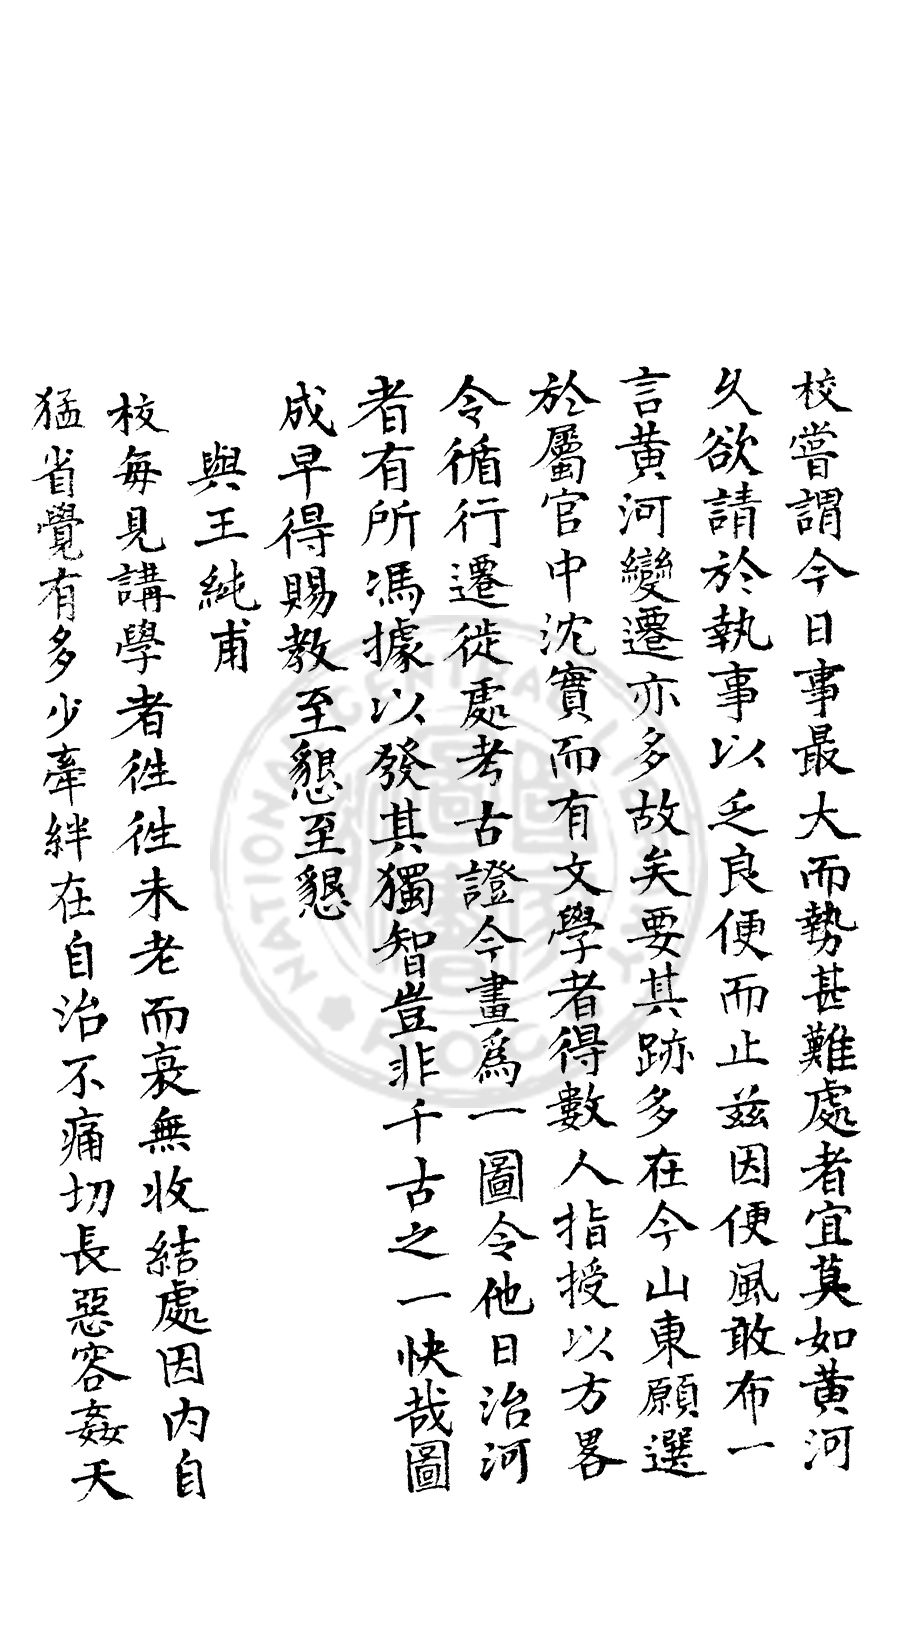 校嘗謂今日事最大而勢甚難處者宜莫如黄河
久欲請於執事以乏良便而止兹因便風敢布一
言黄河變遷亦多故矣要其跡多在今山東願選
於屬官中沈實而有文學者得數人指授以方畧
令循行遷徙處考古證今畫爲一圖令他日治河
者有所馮據以發其獨智豈非千古之一快哉圖
成早得賜教至懇至懇
與王純甫
校每見講學者徃徃未老而衰無收結處因内自
猛省覺有多少牽絆在自治不痛切長惡容姦天
NATIONAL CENTRAL LIBRARY